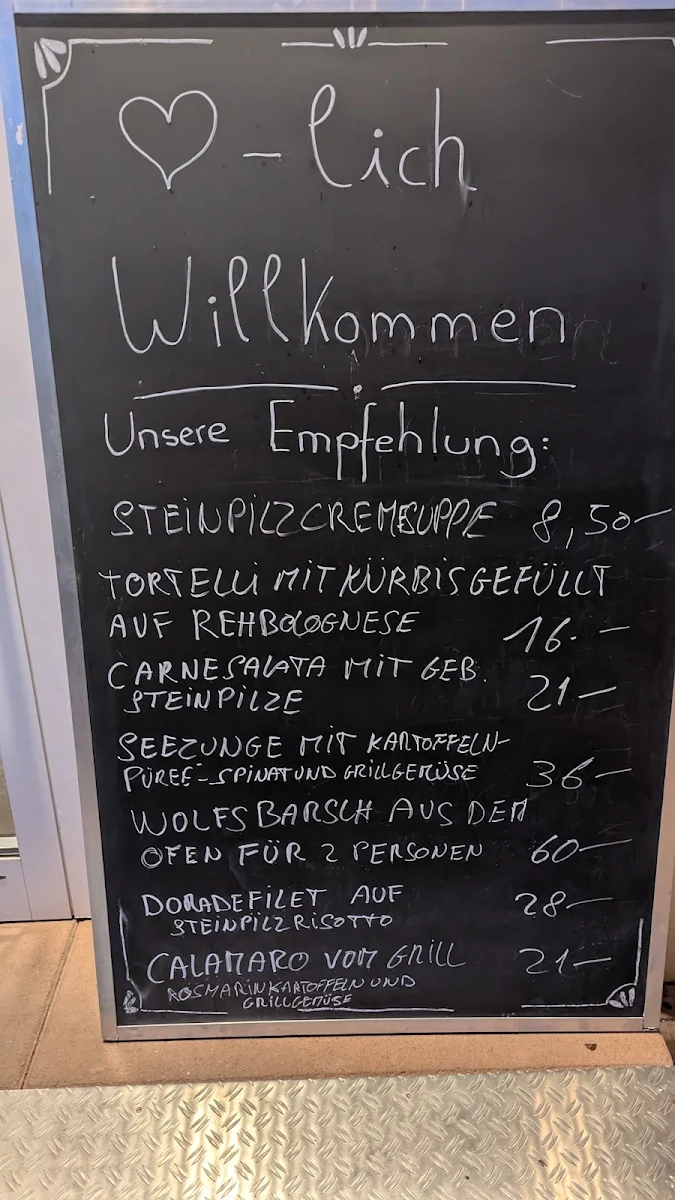 ♡-lich
Willkommen
Unsere Empfehlung:
STEINPILZCREMESUPPE 8,50-
TORTELLI MIT KÜRBIS GEFÜLLT
AUF REHBOLOGNESE 16.-
CARNE SALATA MIT GEB.
STEINPILZE 21-
SEEZUNGE MIT KARTOFFELN-
PÜREE-SPINAT UND GRILLGEMÜSE 36-
WOLFSBARSCH AUS DEM
OFEN FÜR 2 PERSONEN 60-
DORADEFILET AUF 28-
STEINPILZRISOTTO
CALAMARO VOM GRILL 21-
ROSMARINKARTOFFELN UND
GRILLGEMÜSE